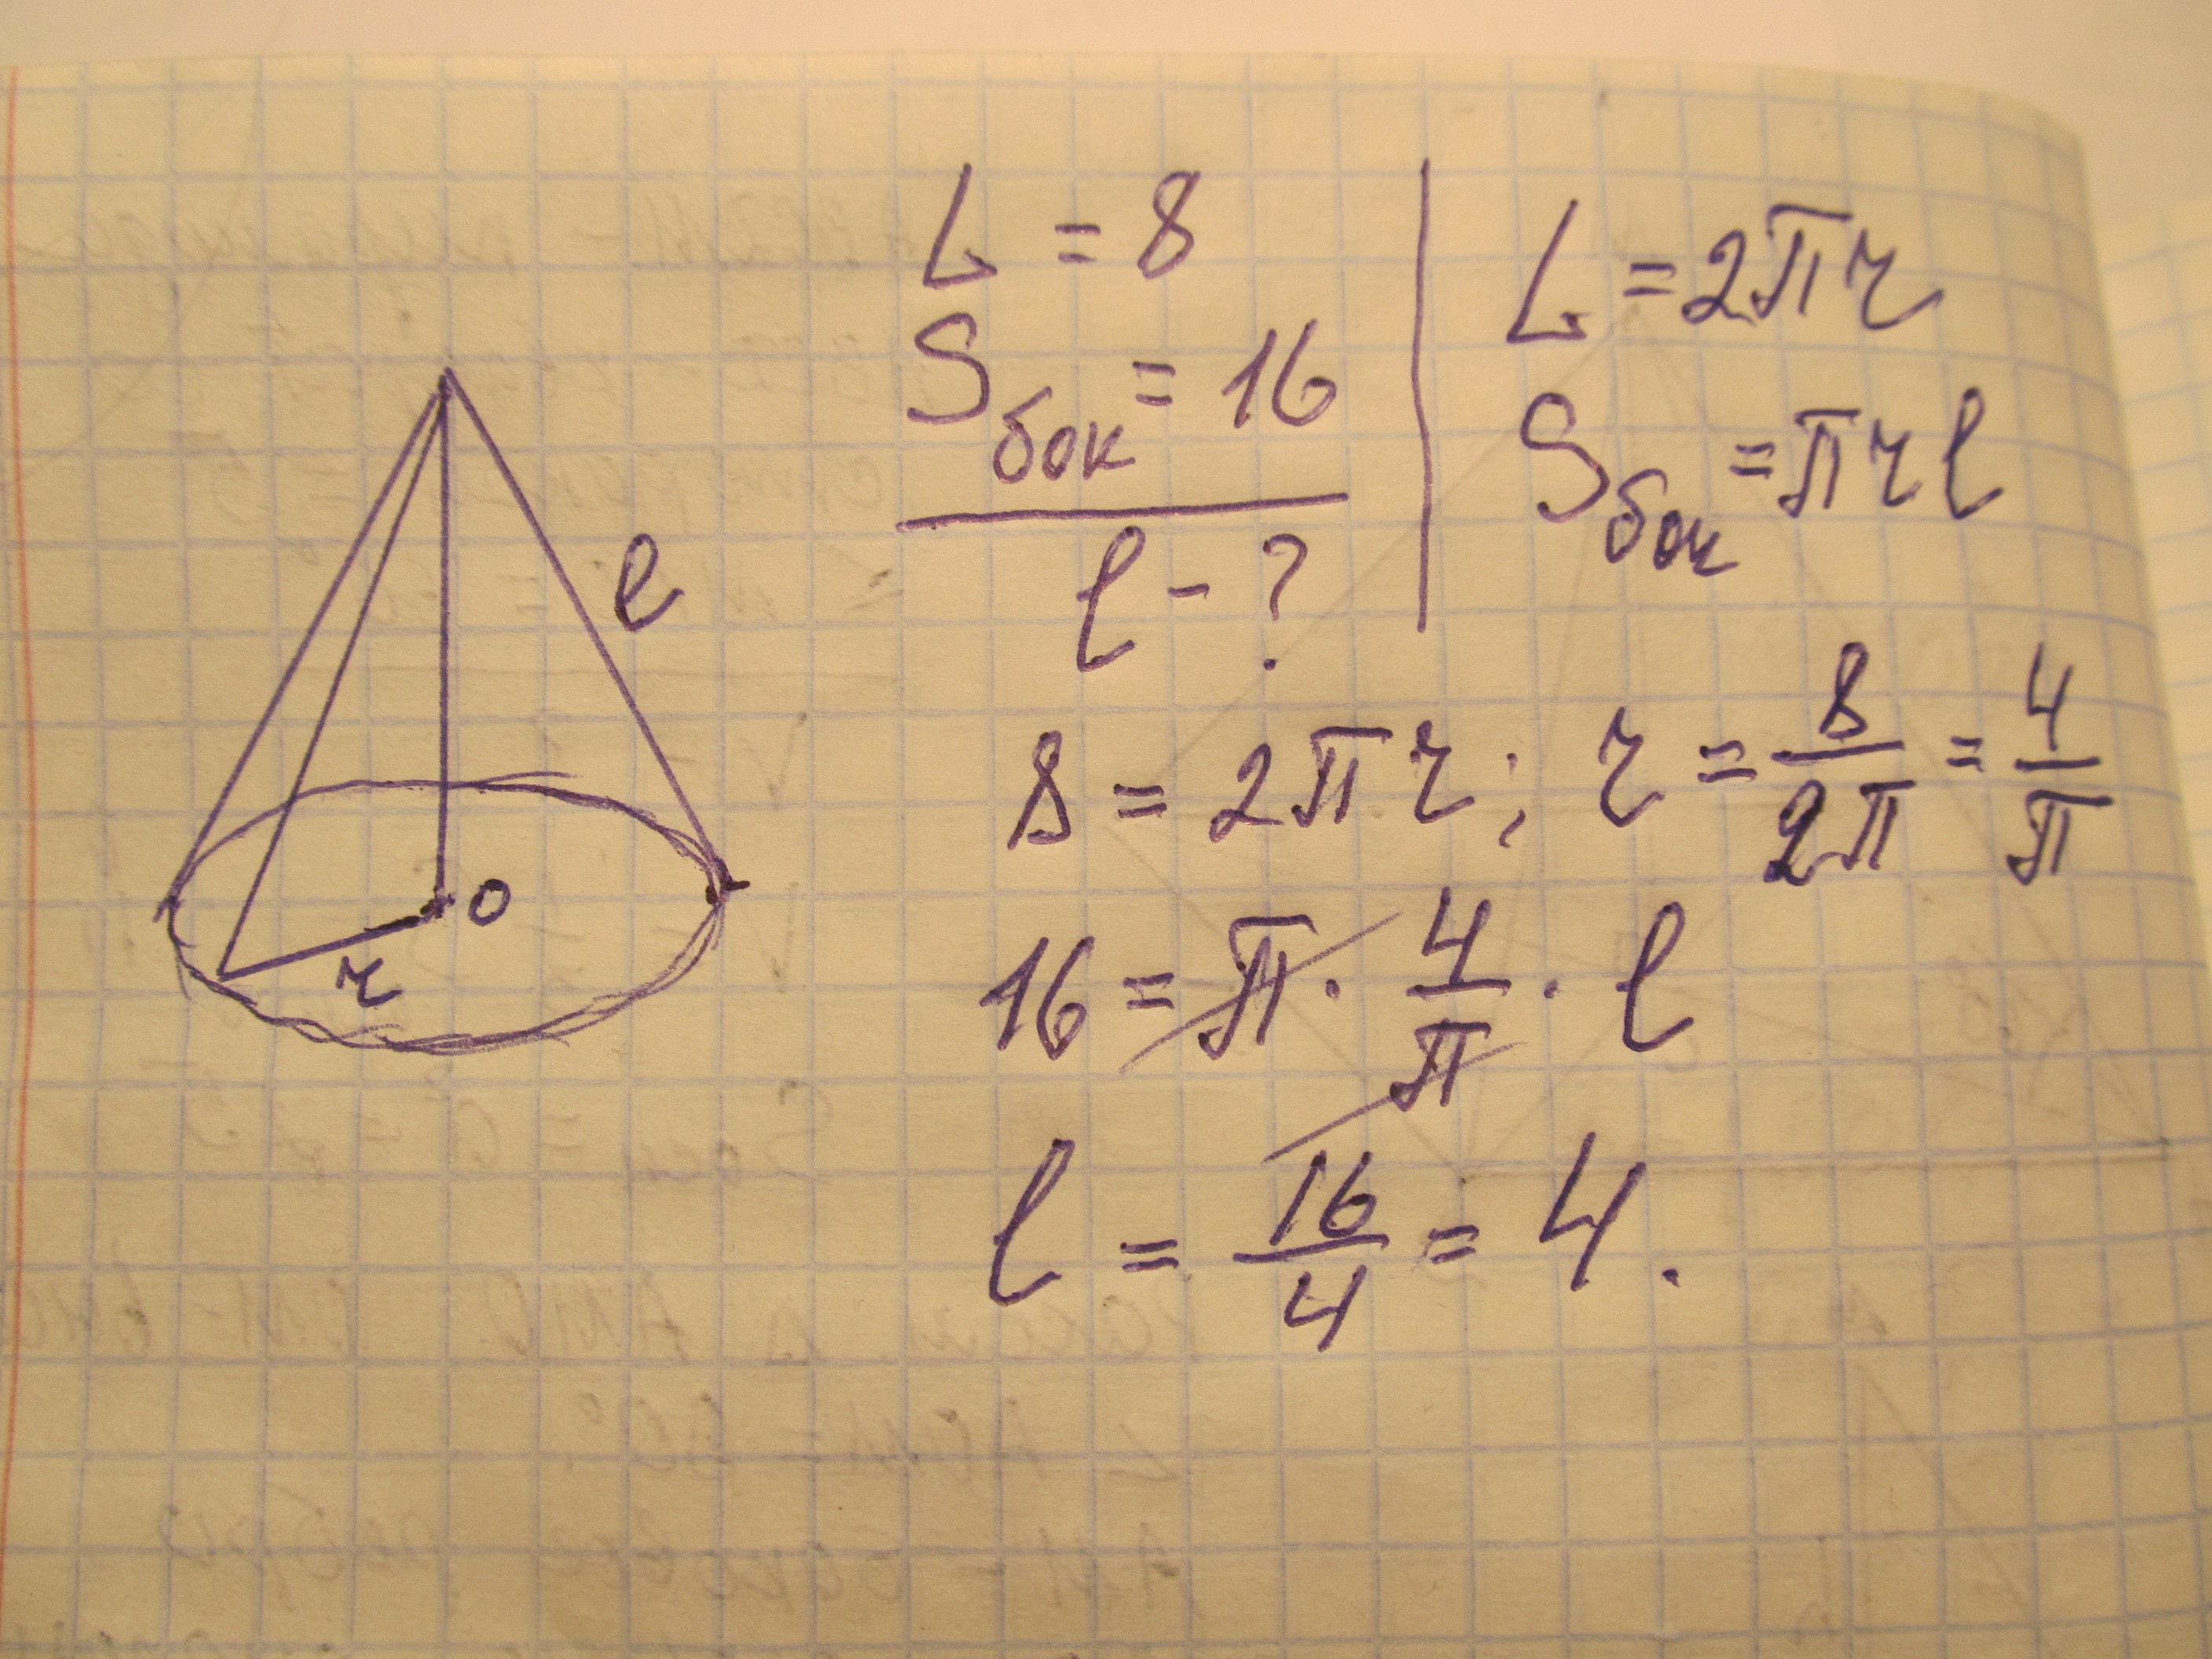 L = 8
Sбок = 16
l - ?
L = 2πr
Sбок = πrl
l
o
r
8 = 2πr; r = 8/2π = 4/π
16 = π · 4/π · l
l = 16/4 = 4.